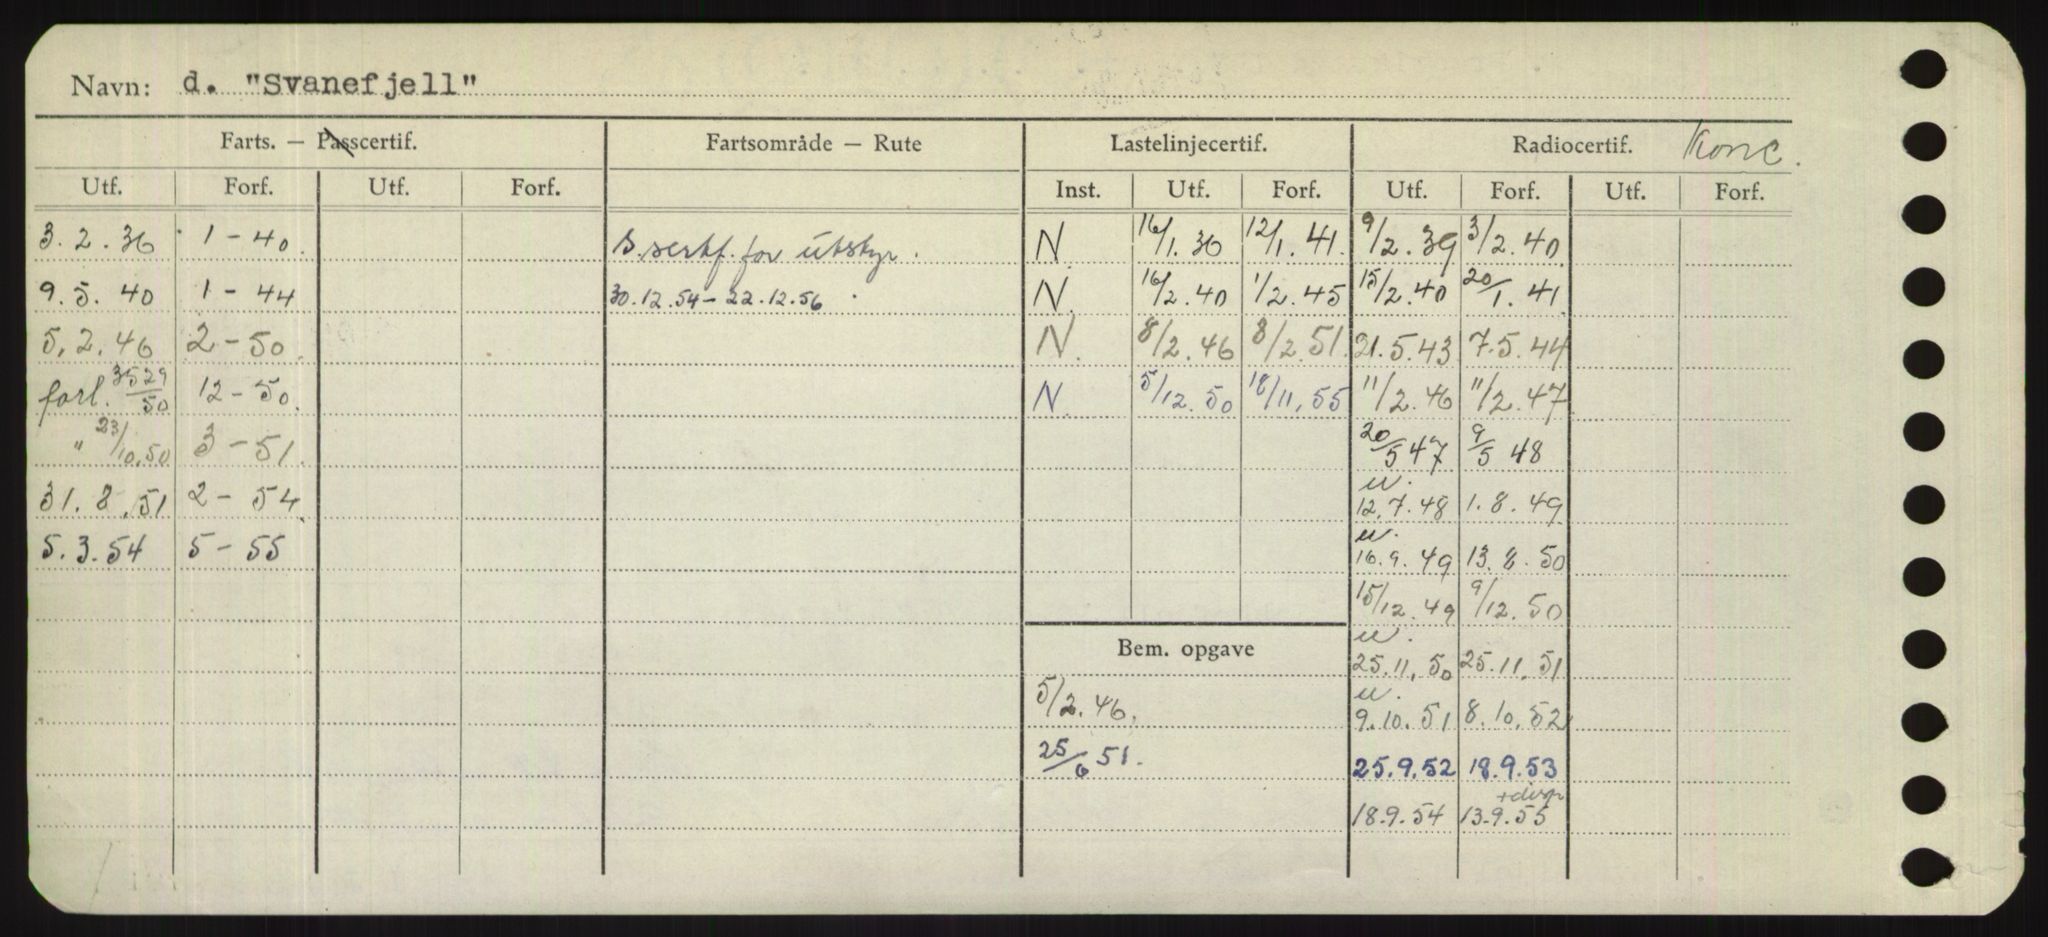 Navn: d. "Svanefjell"
Farts. — Passcertif. Fartsområde — Rute Lastelinjecertif. Radiocertif. Konc.
Utf. Forf. Utf. Forf. Inst. Utf. Forf. Utf. Forf. Utf. Forf.
3.2.36 1-40. S.sertf. for utstyr. N. 16/1.36 12/1.41. 9/2.39 3/2.40
9.5.40 1-44 30.12.54-22.12.56 N. 16/2.40 1/2.45 15/2.40 20/1.41
5.2.46 2-50. N. 8/2.46 8/2.51. 21.5.43 7.5.44
forl. 3529/50 12-50. N. 5/12.50 18/11.55 11/2.46 11/2.47
" 23/10.50 3-51. 20/5 47 9/5 48
u.
31.8.51 2-54 12.7.48 1.8.49
u.
5.3.54 5-55 16.9.49 13.8.50
15/12.49 9/12.50
u.
Bem. opgave 25.11.50 25.11.51
u.
5/2.46. 9.10.51 8.10.52
25/6 51. 25.9.52 18.9.53
18.9.54 13.9.55